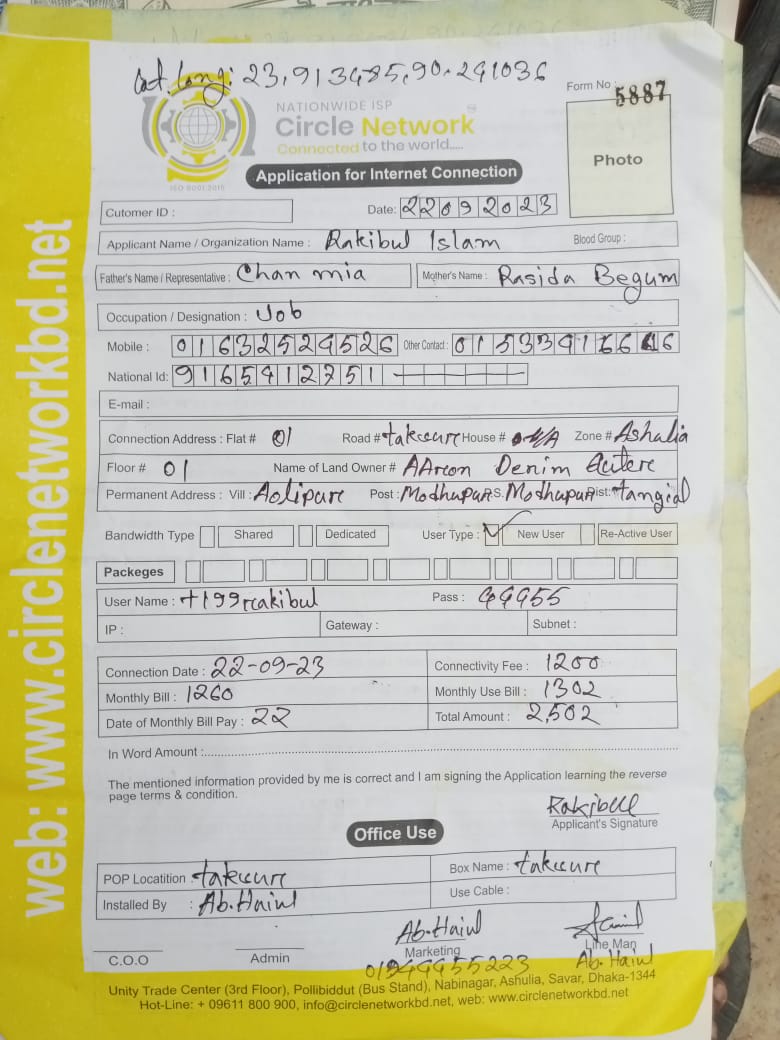 Lat. Long: 23.913485, 90.241036
Form No : 5887
NATIONWIDE ISP
Circle Network
Connected to the world.....
ISO 9001:2015
Photo
Application for Internet Connection
Cutomer ID :
Date: 22092023
Applicant Name / Organization Name : Rakibul Islam Blood Group :
Father's Name / Representative : Chan mia Mother's Name : Rasida Begum
Occupation / Designation : Job
Mobile : 01632529526 Other Contact : 015339166
National Id: 9165912751
E-mail :
Connection Address : Flat # 01 Road # House # N/A Zone # Ashulia
Floor # 01 Name of Land Owner # Denim
Permanent Address : Vill : Aolipure Post : Modhupur P.S. Modhupur Dist: tangial
Bandwidth Type Shared Dedicated User Type : ✓ New User Re-Active User
Packeges
User Name : t199rakibul Pass : 99955
IP : Gateway : Subnet :
Connection Date : 22-09-23 Connectivity Fee : 1200
Monthly Bill : 1260 Monthly Use Bill : 1302
Date of Monthly Bill Pay : 22 Total Amount : 2,502
In Word Amount :
The mentioned information provided by me is correct and I am signing the Application learning the reverse
page terms & condition.
Rakibul
Applicant's Signature
Office Use
POP Locatition : Box Name :
Installed By : Ab. Haiul Use Cable :
Ab. Haiul
C.O.O Admin Marketing Line Man
Ab. Haiul
Unity Trade Center (3rd Floor), Pollibiddut (Bus Stand), Nabinagar, Ashulia, Savar, Dhaka-1344
Hot-Line: + 09611 800 900, info@circlenetworkbd.net, web: www.circlenetworkbd.net
web: www.circlenetworkbd.net